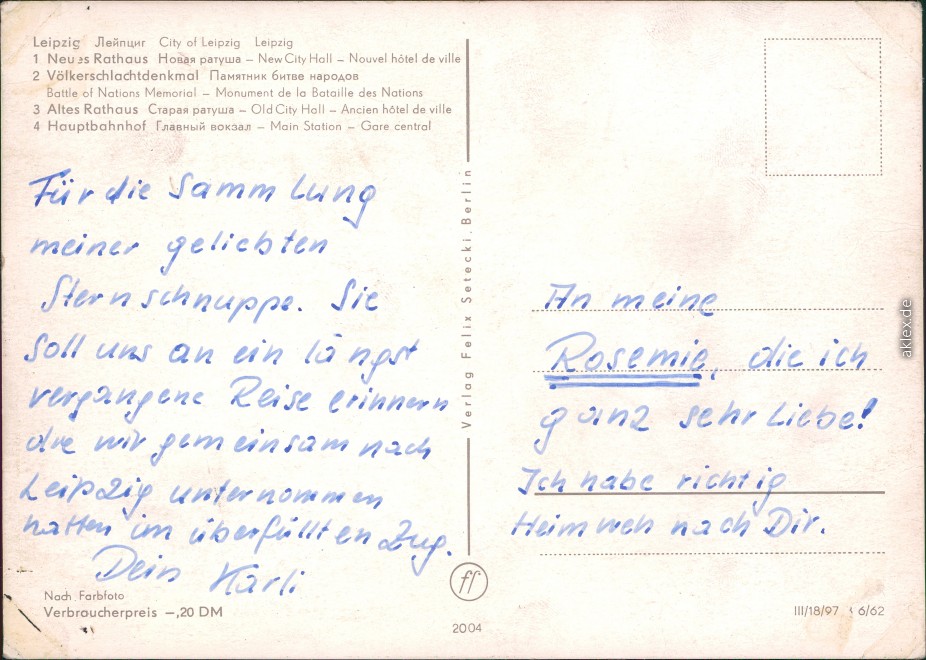 Leipzig Лейпциг City of Leipzig Leipzig
1 Neues Rathaus Новая ратуша – New City Hall – Nouvel hôtel de ville
2 Völkerschlachtdenkmal Памятник битве народов
Battle of Nations Memorial – Monument de la Bataille des Nations
3 Altes Rathaus Старая ратуша – Old City Hall – Ancien hôtel de ville
4 Hauptbahnhof Главный вокзал – Main Station – Gare central
Für die Sammlung
meiner geliebten
Sternschnuppe. Sie
soll uns an ein längst
vergangene Reise erinnern
die wir gemeinsam nach
Leipzig unternommen
hatten im überfüllten Zug.
Dein Karli
Nach Farbfoto
Verbraucherpreis –,20 DM
Verlag Felix Setecki, Berlin
ff
2004
An meine
Rosemie, die ich
ganz sehr Liebe!
Ich habe richtig
Heimweh nach Dir.
III/18/97 6/62
aklex.de